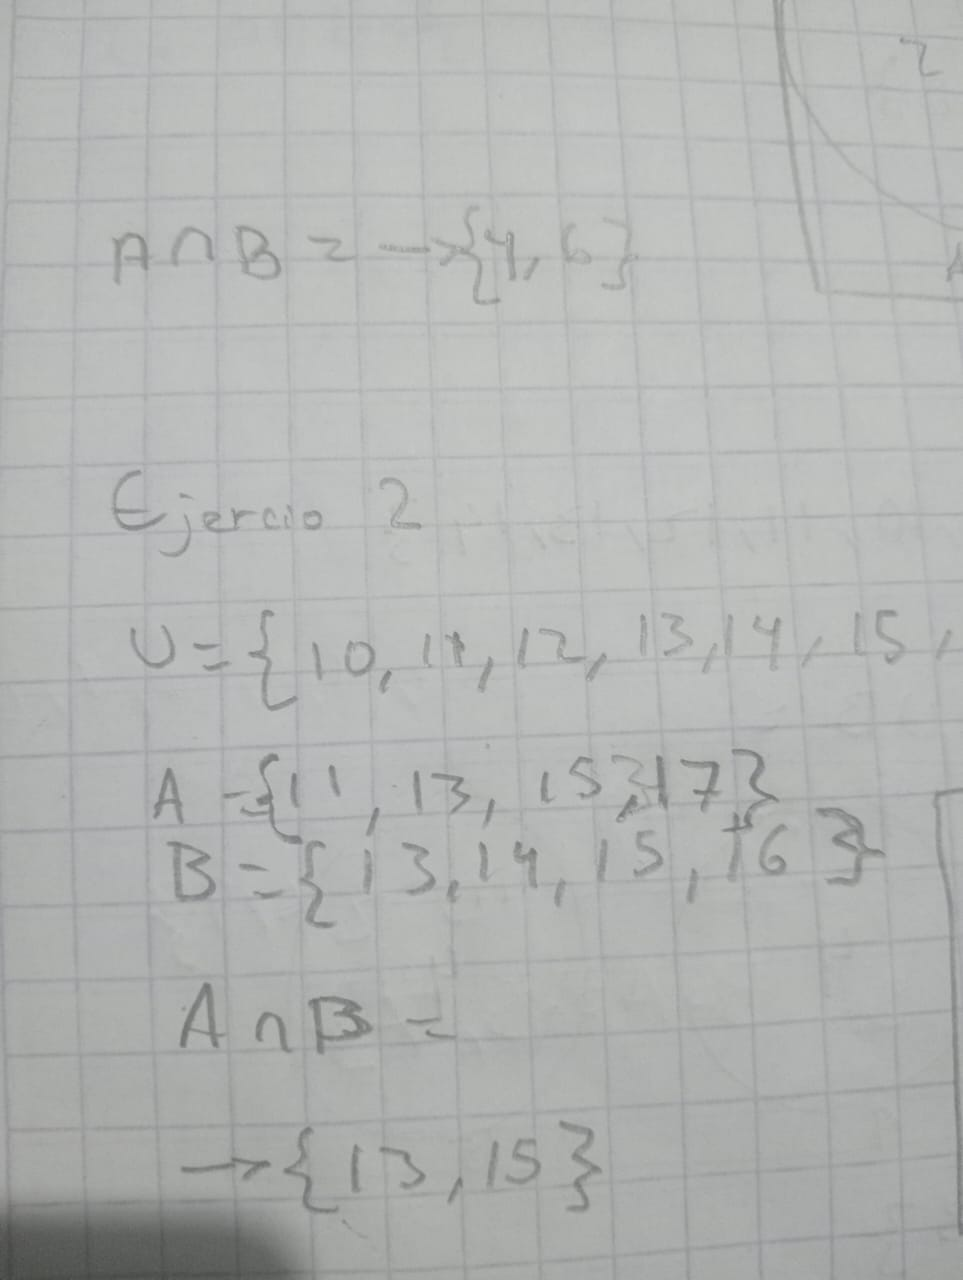 2
A ∩ B = → {4, 6}
Ejercio 2
U = { 10, 11, 12, 13, 14, 15,
A = {11, 13, 15, 17}
B = { 13, 14, 15, 16 }
A ∩ B =
→ { 13, 15 }